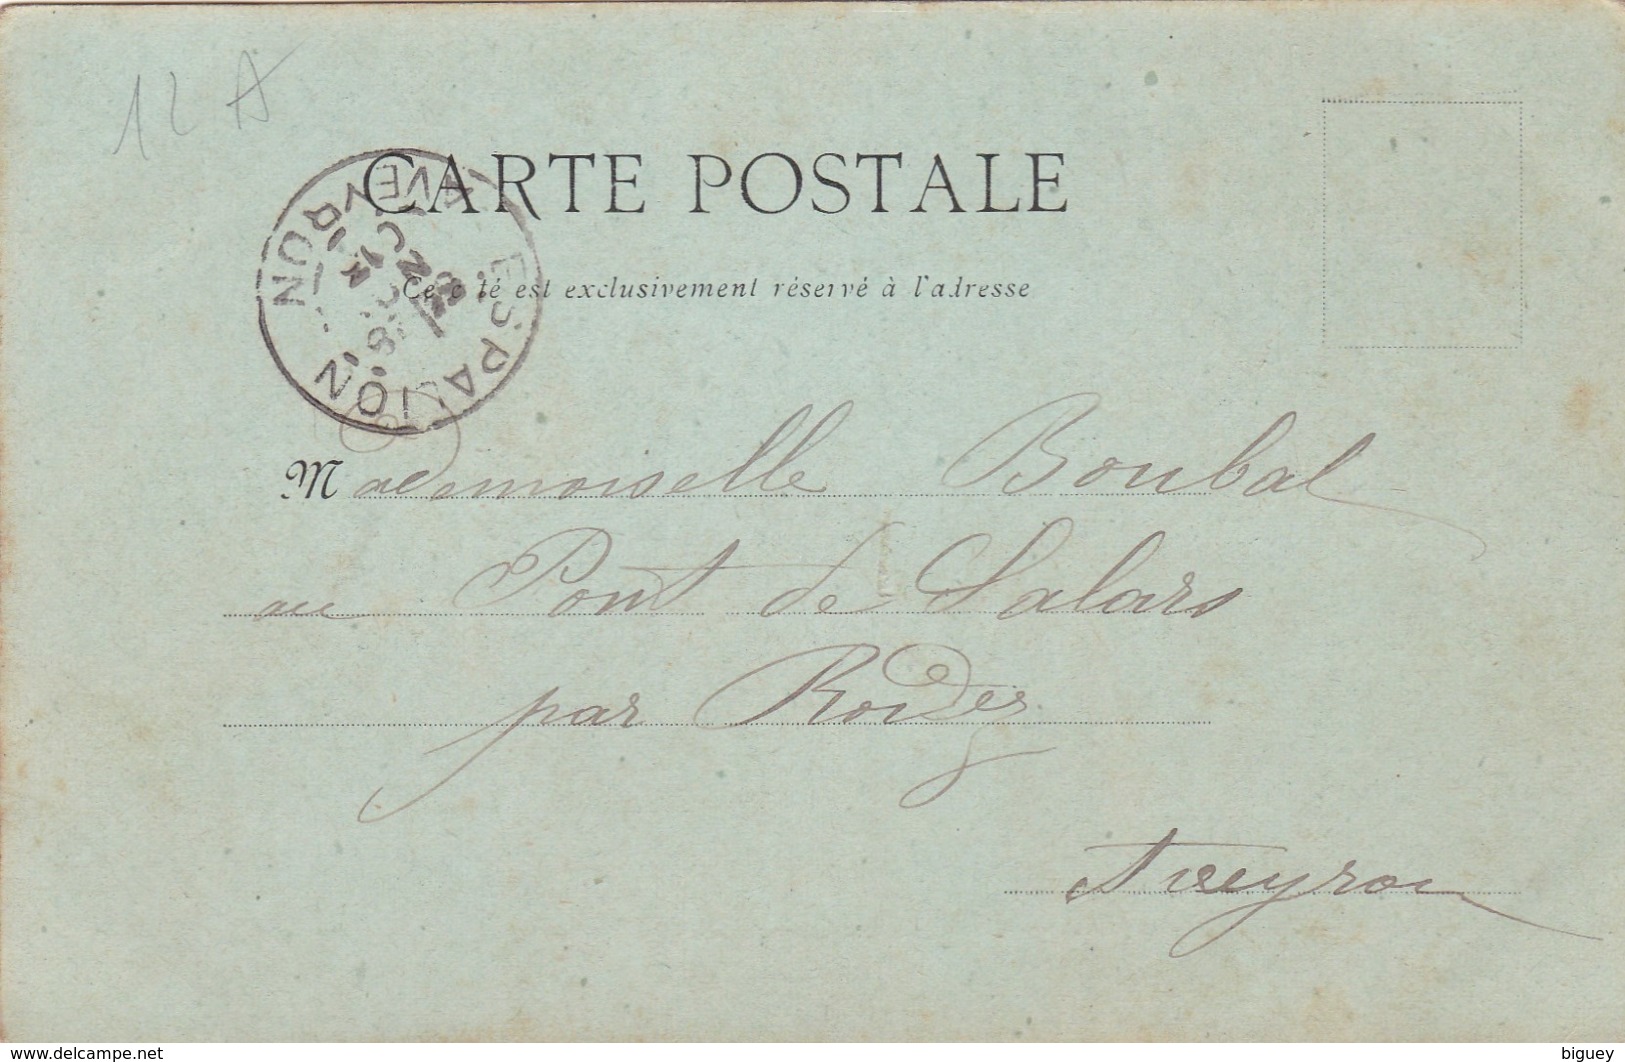 12 A
CARTE POSTALE
Ce côté est exclusivement réservé à l'adresse
ESPALION
AVEYRON
Mademoiselle Boubal
au Pont de Salars
par Rodez
Aveyron
www.delcampe.net
biguey